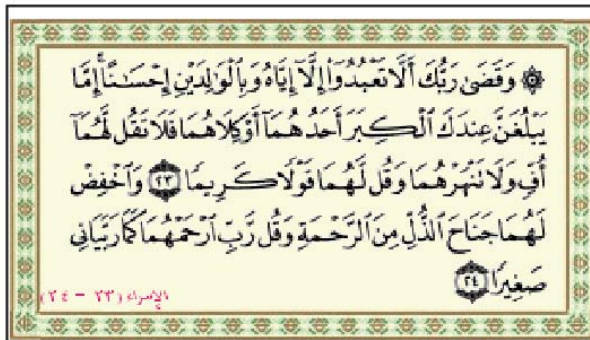 ۞ وَقَضَىٰ رَبُّكَ أَلَّا تَعْبُدُوٓا۟ إِلَّآ إِيَّاهُ وَبِٱلْوَٰلِدَيْنِ إِحْسَـٰنًا ۚ إِمَّا
يَبْلُغَنَّ عِندَكَ ٱلْكِبَرَ أَحَدُهُمَآ أَوْ كِلَاهُمَا فَلَا تَقُل لَّهُمَآ
أُفٍّ وَلَا تَنْهَرْهُمَا وَقُل لَّهُمَا قَوْلًا كَرِيمًا ٢٣ وَٱخْفِضْ
لَهُمَا جَنَاحَ ٱلذُّلِّ مِنَ ٱلرَّحْمَةِ وَقُل رَّبِّ ٱرْحَمْهُمَا كَمَا رَبَّيَانِى
صَغِيرًا ٢٤
الإسراء (٢٣ - ٢٤)